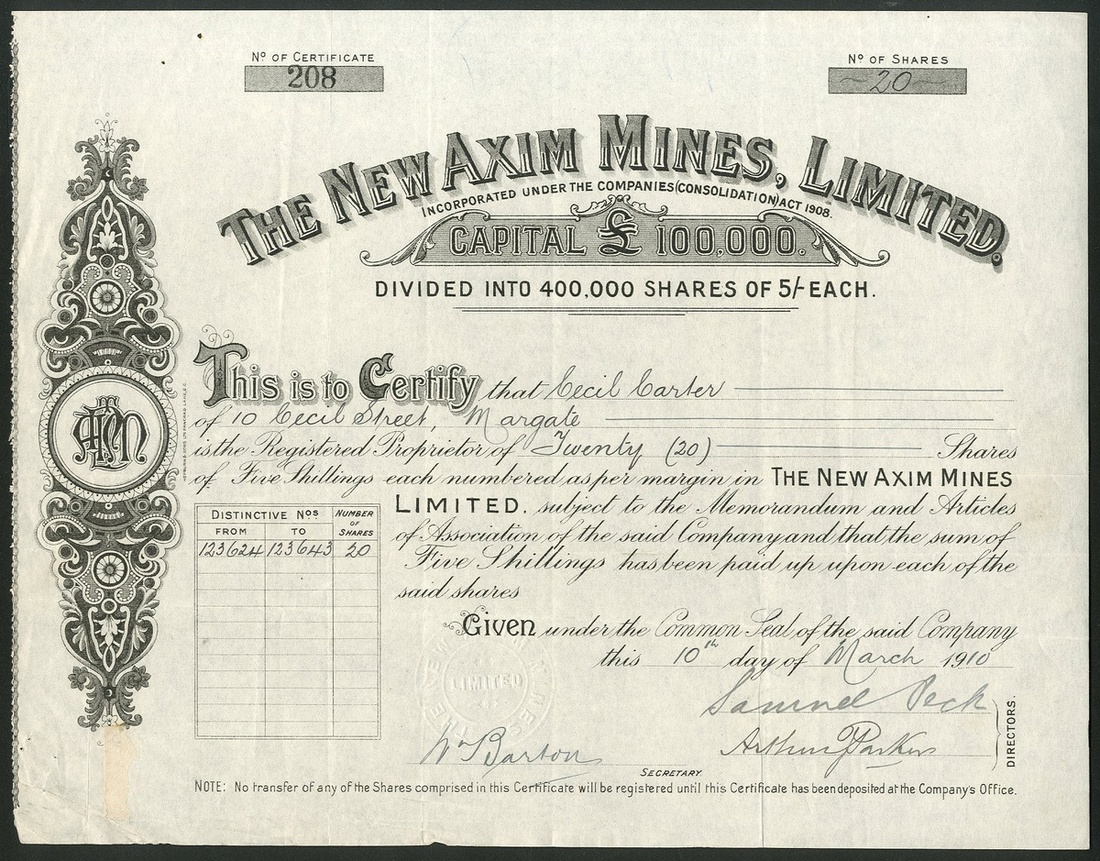 Nº OF CERTIFICATE
208
Nº OF SHARES
20
THE NEW AXIM MINES, LIMITED.
INCORPORATED UNDER THE COMPANIES (CONSOLIDATION) ACT 1908.
CAPITAL £ 100,000.
DIVIDED INTO 400,000 SHARES OF 5/- EACH.
This is to Certify that Cecil Carter
of 10 Cecil Street, Margate
is the Registered Proprietor of Twenty (20) Shares
of Five Shillings each numbered as per margin in THE NEW AXIM MINES
LIMITED. subject to the Memorandum and Articles
of Association of the said Company and that the sum of
Five Shillings has been paid up upon each of the
said shares
DISTINCTIVE Nos NUMBER OF SHARES
FROM TO
123624 123643 20
Given under the Common Seal of the said Company
this 10th day of March 1910
LIMITED
Samuel Peck
Arthur Parker
DIRECTORS.
Wm Barton
SECRETARY
NOTE: No transfer of any of the Shares comprised in this Certificate will be registered until this Certificate has been deposited at the Company's Office.